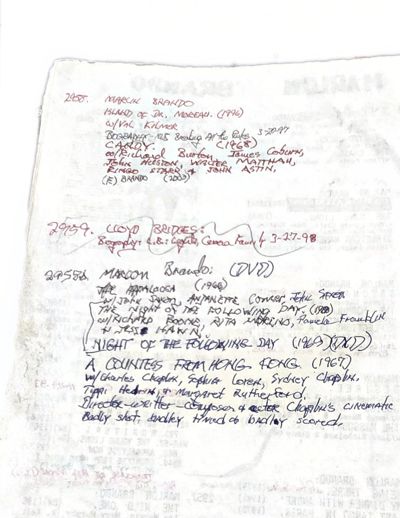 2955. MARLON BRANDO
ISLAND OF DR. MOREAU. (1996)
w/VAL KILMER
BIOGRAPHY: Breaking All the Rules 3-20-97
CANDY. (1968)
w/Richard Burton, James Coburn,
JOHN HUSTON, WALTER MATTHAU,
RINGO STARR & JOHN ASTIN,
(E) BRANDO (2003)
LLOYD BRIDGES:
Biography: L.B.: Camera Family 3-27-98
MARLON Brando: (DVD)
THE APPALOOSA (1966)
w/JOHN SAXON, ANJANETTE COMER,
THE NIGHT OF THE FOLLOWING DAY.
w/RICHARD BOONE RITA MORENO, Pamela Franklin
& JESS HAHN.
NIGHT OF THE FOLLOWING DAY (1969)(DVD)
A COUNTESS FROM HONG KONG. (1967)
w/Charles Chaplin, Sophia Loren, Sydney Chaplin,
Tippi Hedren & Margaret Rutherford.
Director-writer-composer & actor Chaplin's cinematic
Badly shot, badly timed & badly scored.